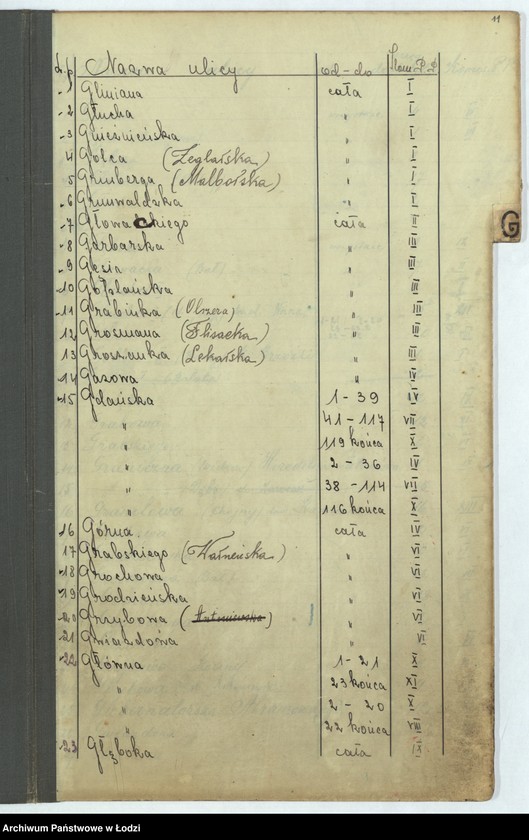 11
L.p. Nazwa ulicy od - do Kom. P.P.
1 Gliniana cała I
2 Głucha " I
3 Gnieźnieńska " I
4 Golca (Żeglarska) " I
5 Grinberga (Malborska) " I
6 Grunwaldzka " I
7 Głowackiego cała II
8 Garbarska " III
9 Gęsia " III
10 Goplańska " III
11 Grabińka (Olszera) " III
12 Grosmana (Flisacka) " III
13 Groszanka (Lekarska) " III
14 Gazowa " IV
15 Gdańska 1 - 39 IV
" 41 - 117 VII
" 119 końca X
" 2 - 36 IV
" 38 - 114 VII
" 116 końca X
16 Górna cała IV
17 Grabskiego " VI
18 Grochowa " VI
19 Grodzieńska " VI
20 Grzybowa " VI
21 Gwiazdowa " VI
22 Główna 1 - 21 X
" 23 końca XI
" 2 - 20 X
22 końca VIII
23 Głęboka cała IX
G
Archiwum Państwowe w Łodzi